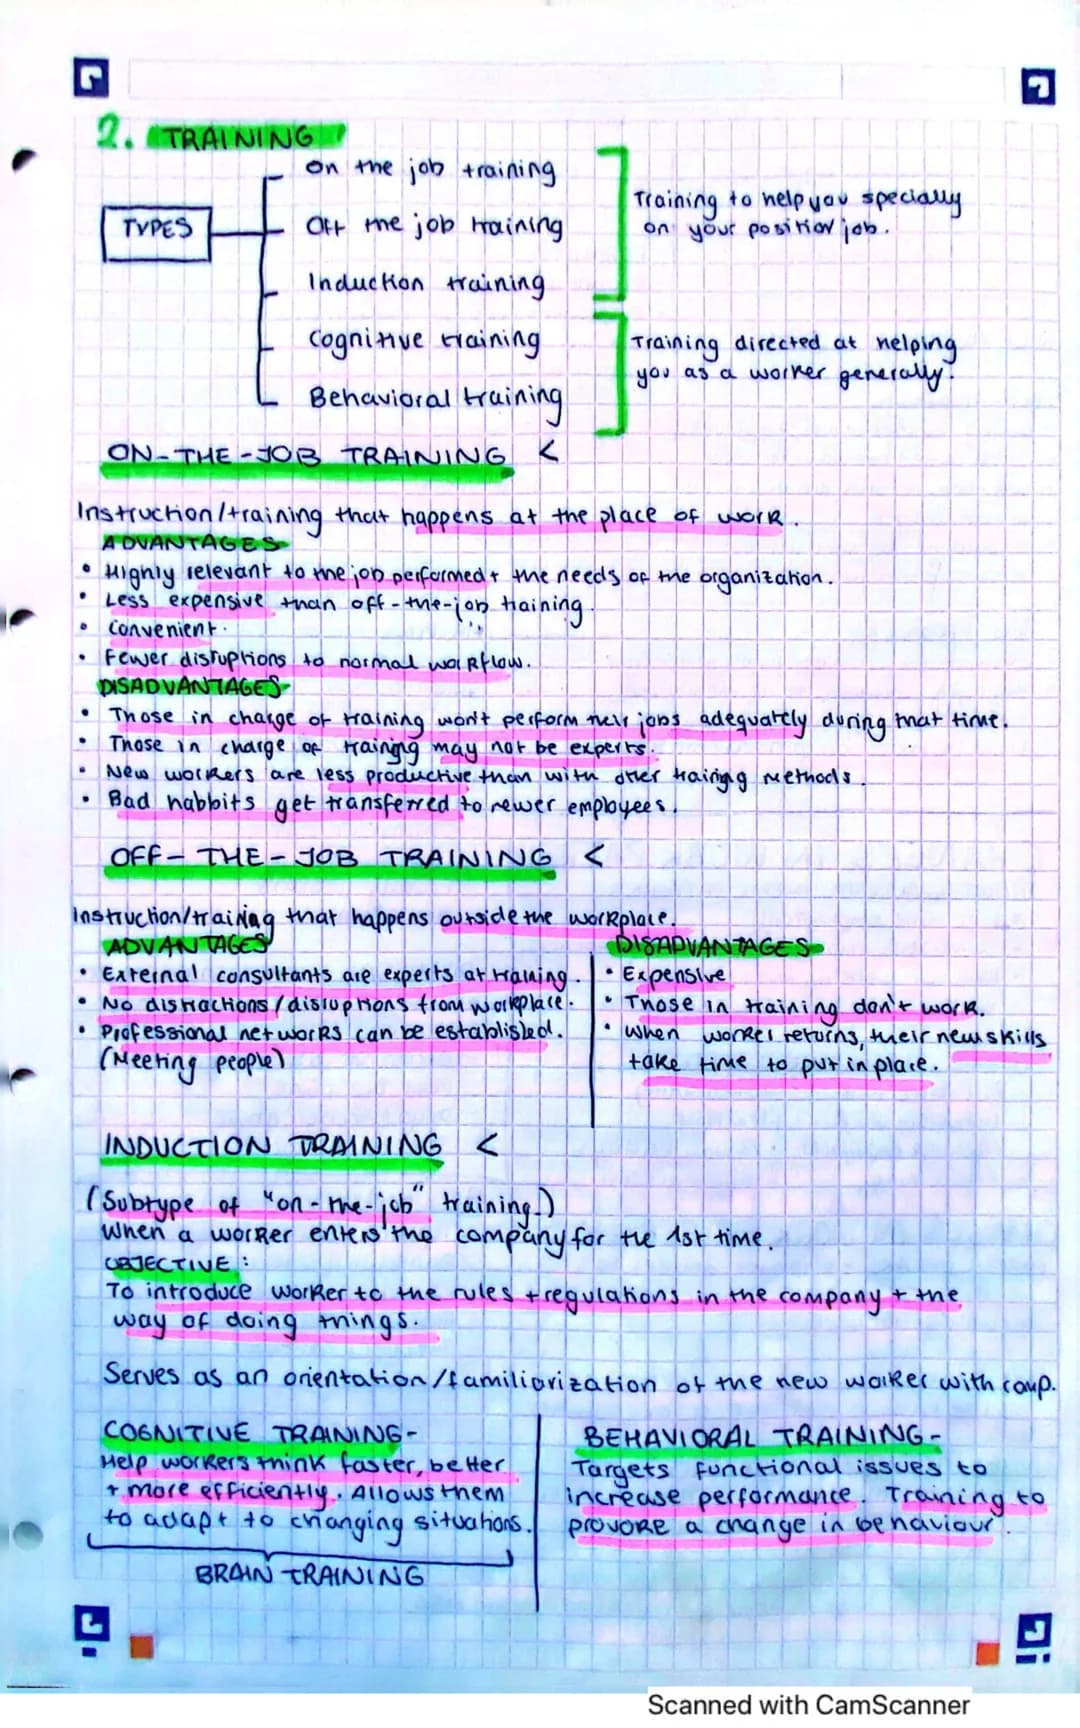 2. TRAINING
TYPES
On the job training
Off the job training
Induction training
Training to help you specially
on your position/job.
Cognitive training
Behavioral training
Training directed at helping
you as a worker generally.
ON-THE-JOB TRAINING <
Instruction/training that happens at the place of work.
ADVANTAGES
• Highly relevant to the job performed + the needs of the organization.
• Less expensive than off-the-job training.
• Convenient.
• Fewer disruptions to normal workflow.
DISADVANTAGES
• Those in charge of training won't perform their jobs adequately during that time.
• Those in charge of training may not be experts.
• New workers are less productive than with other training methods.
• Bad habbits get transferred to newer employees.
OFF-THE-JOB TRAINING <
Instruction/training that happens outside the workplace.
ADVANTAGES
• External consultants are experts at training.
• No distractions/disruptions from workplace.
• Professional networks can be established.
(Meeting people)
DISADVANTAGES
• Expensive
• Those in training don't work.
• When worker returns, their new skills
take time to put in place.
INDUCTION TRAINING <
(Subtype of "on-the-job" training.)
When a worker enters the company for the 1st time.
OBJECTIVE:
To introduce worker to the rules + regulations in the company + the
way of doing things.
Serves as an orientation/familiarization of the new worker with comp.
COGNITIVE TRAINING-
Help workers think faster, better
+ more efficiently. Allows them
to adapt to changing situations.
BRAIN TRAINING
BEHAVIORAL TRAINING-
Targets functional issues to
increase performance. Training to
provoke a change in behaviour.
Scanned with CamScanner